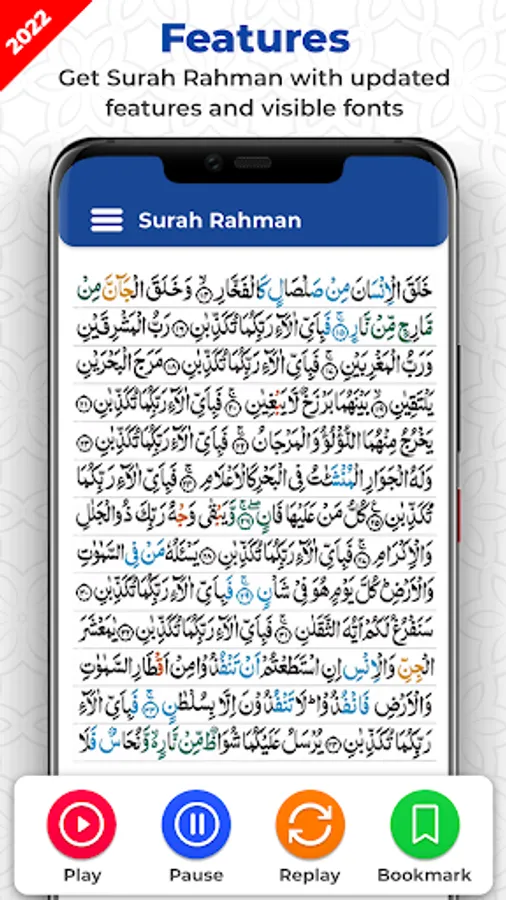 2022
Features
Get Surah Rahman with updated
features and visible fonts
Surah Rahman
خَلَقَ الْاِنْسَانَ مِنْ صَلْصَالٍ كَالْفَخَّارِ ۙ﴿۱۴﴾ وَخَلَقَ الْجَآنَّ مِنْ
مَّارِجٍ مِّنْ نَّارٍ ۚ﴿۱۵﴾ فَبِاَىِّ اٰلَآءِ رَبِّكُمَا تُكَذِّبٰنِ ﴿۱۶﴾ رَبُّ الْمَشْرِقَيْنِ
وَرَبُّ الْمَغْرِبَيْنِ ۚ﴿۱۷﴾ فَبِاَىِّ اٰلَآءِ رَبِّكُمَا تُكَذِّبٰنِ ﴿۱۸﴾ مَرَجَ الْبَحْرَيْنِ
يَلْتَقِيٰنِ ۙ﴿۱۹﴾ بَيْنَهُمَا بَرْزَخٌ لَّا يَبْغِيٰنِ ۚ﴿۲۰﴾ فَبِاَىِّ اٰلَآءِ رَبِّكُمَا تُكَذِّبٰنِ ﴿۲۱﴾
يَخْرُجُ مِنْهُمَا اللُّؤْلُؤُ وَالْمَرْجَانُ ۚ﴿۲۲﴾ فَبِاَىِّ اٰلَآءِ رَبِّكُمَا تُكَذِّبٰنِ ﴿۲۳﴾
وَلَهُ الْجَوَارِ الْمُنْشَئٰتُ فِى الْبَحْرِ كَالْاَعْلَامِ ۚ﴿۲۴﴾ فَبِاَىِّ اٰلَآءِ رَبِّكُمَا
تُكَذِّبٰنِ ﴿۲۵﴾ كُلُّ مَنْ عَلَيْهَا فَانٍ ۖۚ﴿۲۶﴾ وَّيَبْقٰى وَجْهُ رَبِّكَ ذُو الْجَلٰلِ
وَالْاِكْرَامِ ۚ﴿۲۷﴾ فَبِاَىِّ اٰلَآءِ رَبِّكُمَا تُكَذِّبٰنِ ﴿۲۸﴾ يَسْئَلُهٗ مَنْ فِى السَّمٰوٰتِ
وَالْاَرْضِ كُلَّ يَوْمٍ هُوَ فِىْ شَاْنٍ ۚ﴿۲۹﴾ فَبِاَىِّ اٰلَآءِ رَبِّكُمَا تُكَذِّبٰنِ ﴿۳۰﴾
سَنَفْرُغُ لَكُمْ اَيُّهَ الثَّقَلٰنِ ۚ﴿۳۱﴾ فَبِاَىِّ اٰلَآءِ رَبِّكُمَا تُكَذِّبٰنِ ﴿۳۲﴾ يٰمَعْشَرَ
الْجِنِّ وَالْاِنْسِ اِنِ اسْتَطَعْتُمْ اَنْ تَنْفُذُوْا مِنْ اَقْطَارِ السَّمٰوٰتِ
وَالْاَرْضِ فَانْفُذُوْا ؕ لَا تَنْفُذُوْنَ اِلَّا بِسُلْطٰنٍ ۚ﴿۳۳﴾ فَبِاَىِّ اٰلَآءِ
رَبِّكُمَا تُكَذِّبٰنِ ﴿۳۴﴾ يُرْسَلُ عَلَيْكُمَا شُوَاظٌ مِّنْ نَّارٍ ۙ وَّنُحَاسٌ فَلَا
Play
Pause
Replay
Bookmark